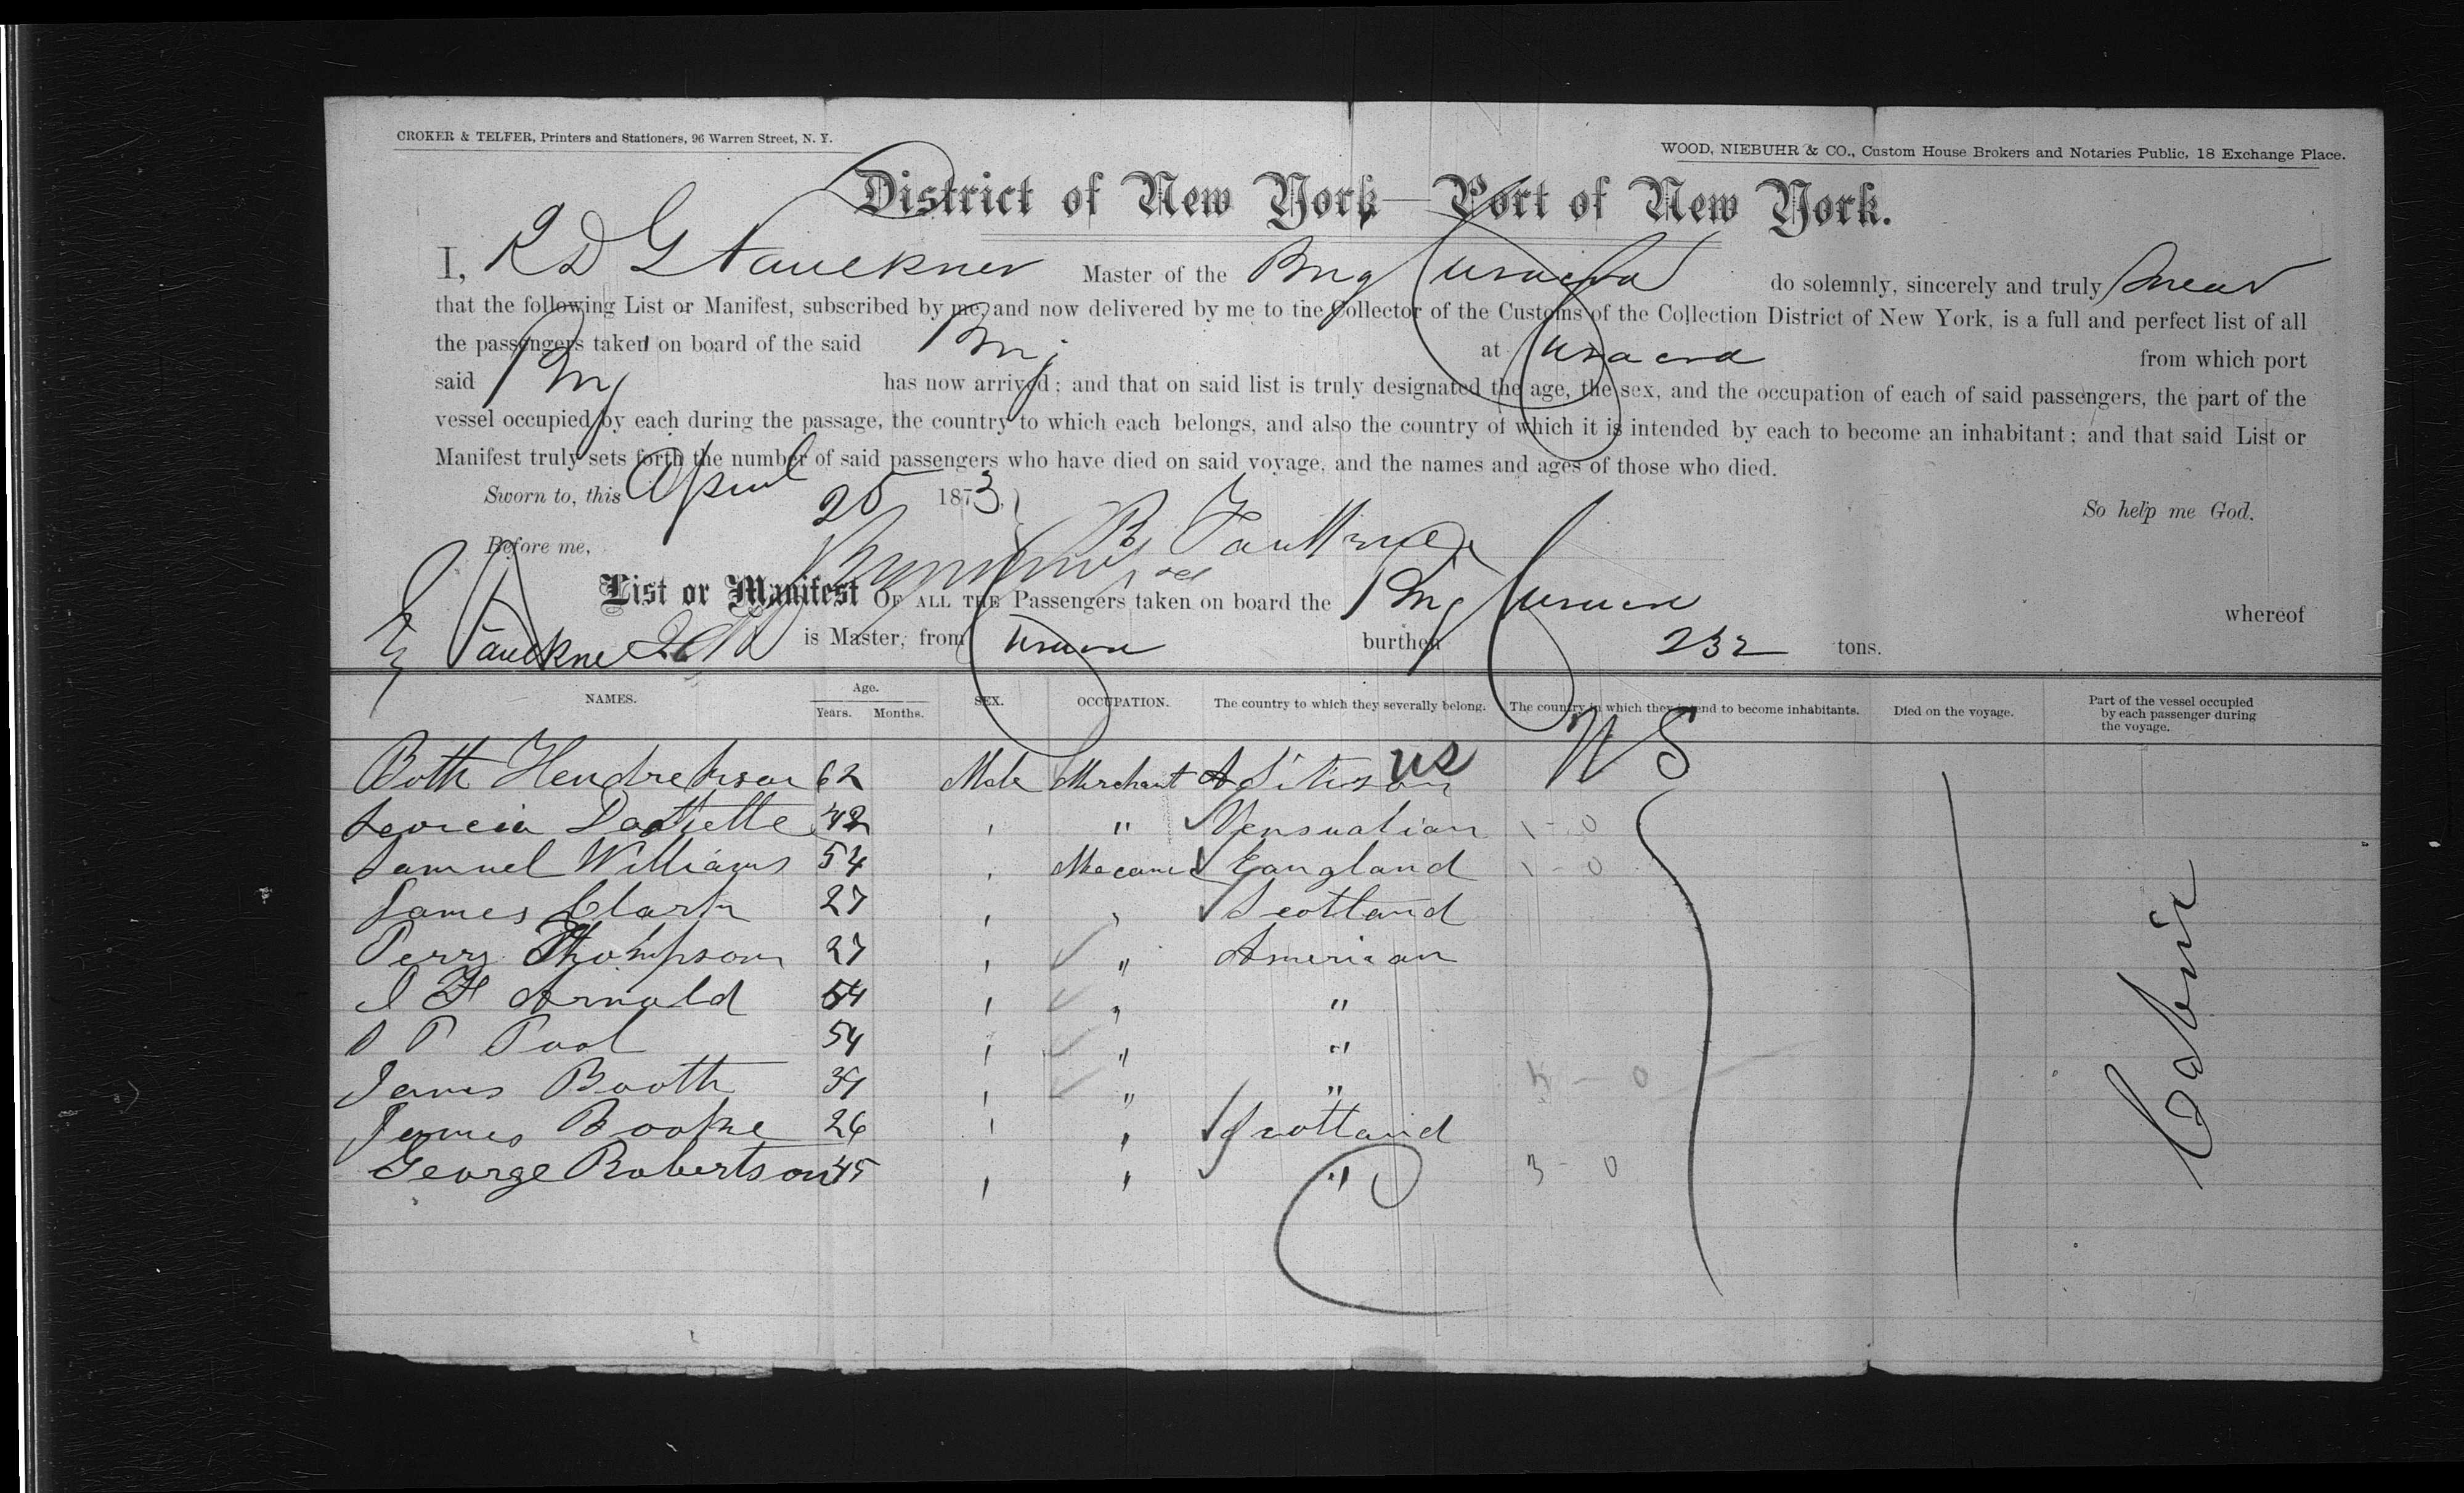 CROKER & TELFER, Printers and Stationers, 96 Warren Street, N. Y.
WOOD, NIEBUHR & CO., Custom House Brokers and Notaries Public, 18 Exchange Place.
District of New York—Port of New York.
I, R D G Faulkner Master of the Brig Curacoa do solemnly, sincerely and truly Swear
that the following List or Manifest, subscribed by me, and now delivered by me to the Collector of the Customs of the Collection District of New York, is a full and perfect list of all
the passengers taken on board of the said Brig at Curacoa from which port
said Brig has now arrived; and that on said list is truly designated the age, the sex, and the occupation of each of said passengers, the part of the
vessel occupied by each during the passage, the country to which each belongs, and also the country of which it is intended by each to become an inhabitant; and that said List or
Manifest truly sets forth the number of said passengers who have died on said voyage, and the names and ages of those who died.
Sworn to, this April 25 1873, So help me God.
Before me, R Faulkner
List or Manifest OF ALL THE Passengers taken on board the Brig Curacoa whereof
Faulkner is Master, from Curacoa burthen 232 tons.
NAMES. Age. Years. Months. SEX. OCCUPATION. The country to which they severally belong. The country in which they intend to become inhabitants. Died on the voyage. Part of the vessel occupied by each passenger during the voyage.
Both 62 Male Merchant A Sitizon US U S
42 " Vensualian 1 - 0
Samuel Williams 54 Mecanic Eangland 1 - 0
James Clark 27 Scotland
Perry Thompson 27 " American
J F Arnold 54 " "
P Pool 54 " "
James Booth 39 " " 5 - 0
James Booke 26 Scotland
George Robertson 45 " 3 - 0
Cabin